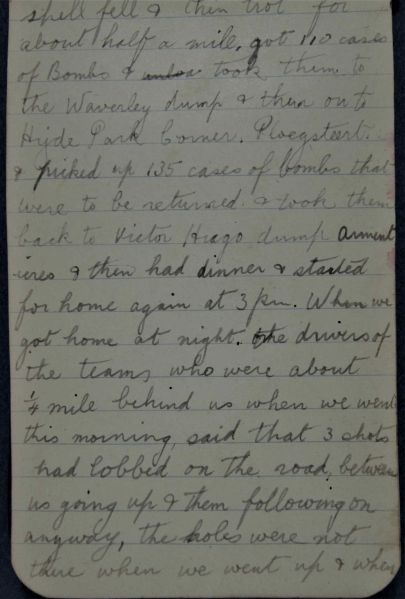 spell fell & then trot for
about half a mile, got 110 cases
of Bombs & took them to
the Waverley dump & then on to
Hyde Park Corner. Ploegsteert.
& picked up 135 cases of bombs that
were to be returned & took them
back to Victor Hugo dump Arment
ieres & then had dinner & started
for home again at 3 pm. When we
got home at night. the drivers of
the teams, who were about
¼ mile behind us when we went
this morning, said that 3 shots
had lobbed on the road, between
us going up & them following on
anyway, the holes were not
there when we went up & when